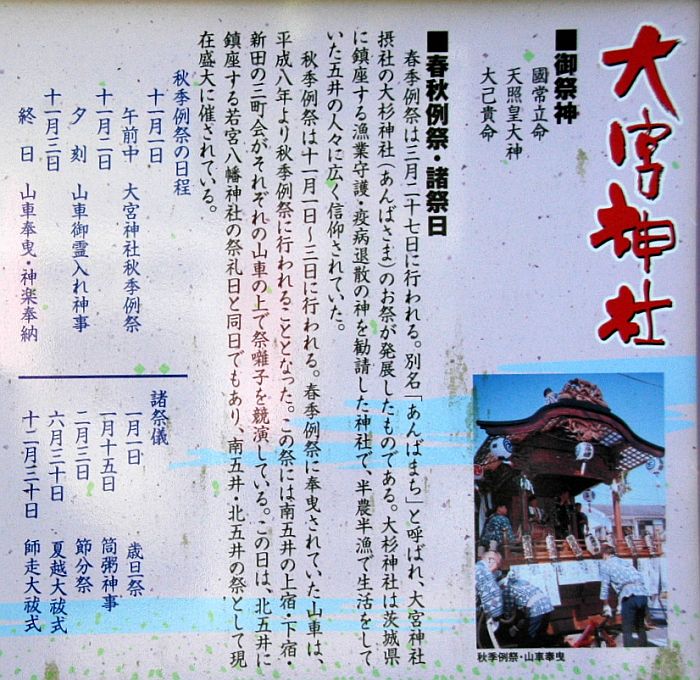 大宮神社
■御祭神
國常立命
天照皇大神
大己貴命
■春秋例祭・諸祭日
春季例祭は三月二十七日に行われる。別名「あんばまち」と呼ばれ、大宮神社
摂社の大杉神社（あんばさま）のお祭が発展したものである。大杉神社は茨城県
に鎮座する漁業守護・疫病退散の神を勧請した神社で、半農半漁で生活をして
いた五井の人々に広く信仰されていた。
秋季例祭は十一月一日～三日に行われる。春季例祭に奉曳されていた山車は、
平成八年より秋季例祭に行われることとなった。この祭には南五井の上宿・下宿・
新田の三町会がそれぞれの山車の上で祭囃子を競演している。この日は、北五井に
鎮座する若宮八幡神社の祭礼日と同日でもあり、南五井・北五井の祭として現
在盛大に催されている。
秋季例祭の日程
十一月一日
午前中　大宮神社秋季例祭
十一月二日
夕刻　山車御霊入れ神事
十一月三日
終日　山車奉曳・神楽奉納
諸祭儀
一月一日　歳旦祭
一月十五日　筒粥神事
二月三日　節分祭
六月三十日　夏越大祓式
十二月三十日　師走大祓式
秋季例祭・山車奉曳